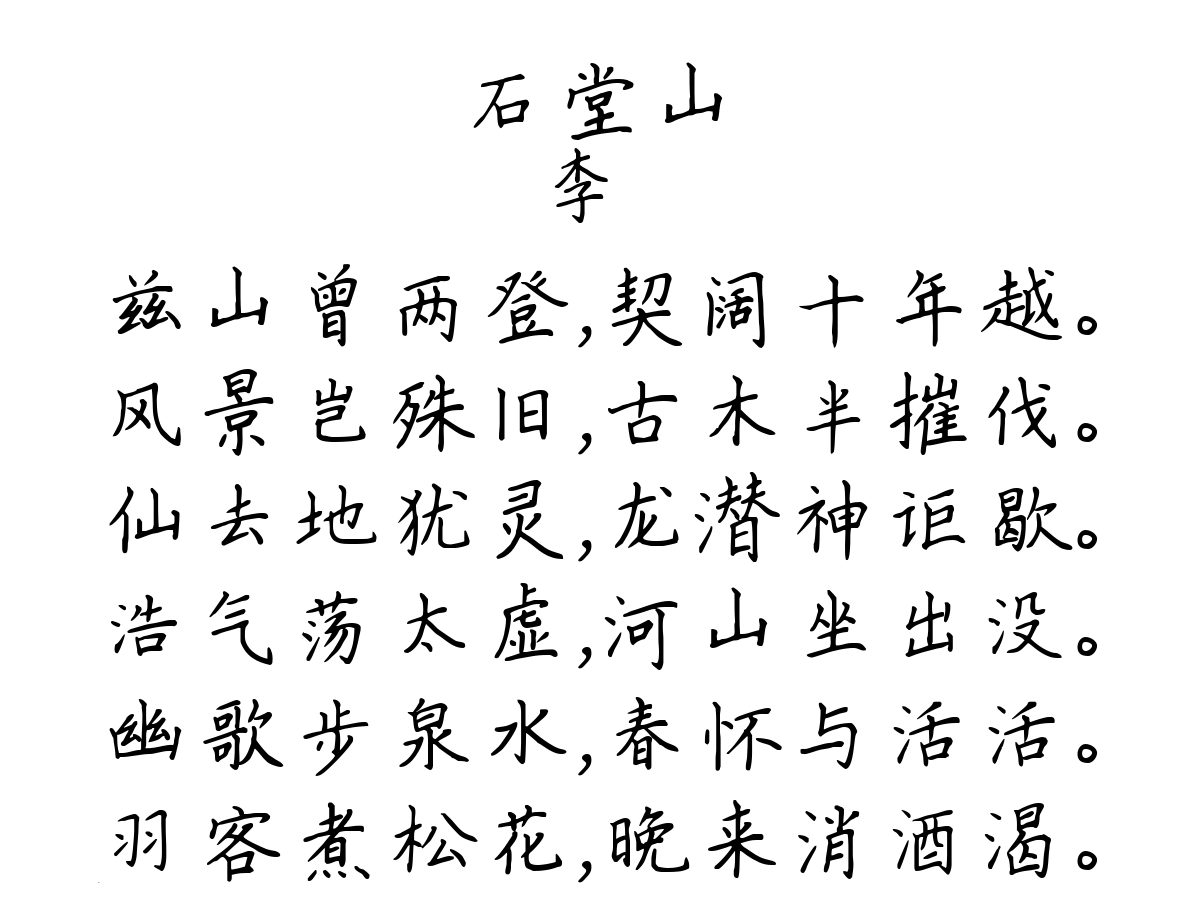 石堂山
李
兹山曾两登,契阔十年越。
风景岂殊旧,古木半摧伐。
仙去地犹灵,龙潜神讵歇。
浩气荡太虚,河山坐出没。
幽歌步泉水,春怀与活活。
羽客煮松花,晚来消酒渴。